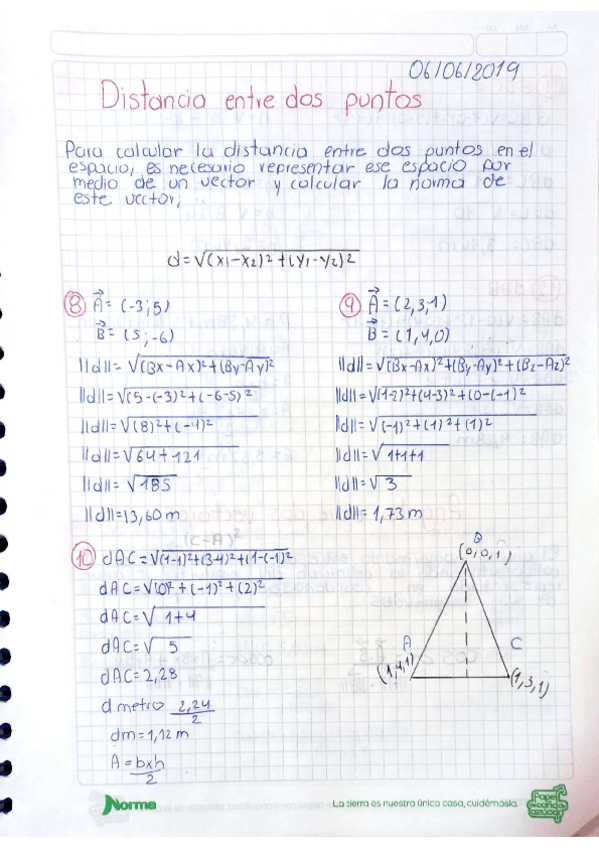 06/06/2019
Distancia entre dos puntos
Para calcular la distancia entre dos puntos en el
espacio, es necesario representar ese espacio por
medio de un vector y calcular la norma de
este vector,
d=√(x1-x2)²+(y1-y2)²
⑧ A⃗= (-3;5)
B⃗= (5;-6)
||d||= √(Bx-Ax)²+(By-Ay)²
||d||=√(5-(-3)²+(-6-5)²
||d||=√(8)²+(-4)²
||d||=√64+121
||d||= √185
||d||=13,60 m
⑨ A⃗= (2,3,1)
B⃗= (1,4,0)
||d||=√(Bx-Ax)²+(By-Ay)²+(Bz-Az)²
||d||=√(1-2)²+(4-3)²+(0-(-1)²
||d||=√(-1)²+(1)²+(1)²
||d||=√1+1+1
||d||=√3
||d||= 1,73 m
⑩ dAC=√(1-1)²+(3-4)²+(1-(-1)²
dAC=√(0)²+(-1)²+(2)²
dAC=√1+4
dAC=√5
dAC=2,28
d metro 2,24/2
dm=1,12 m
A=bxh/2
B
(0,0,1)
A
(1,4,1)
C
(1,3,1)
Norma
La tierra es nuestra única casa, cuidémosla.